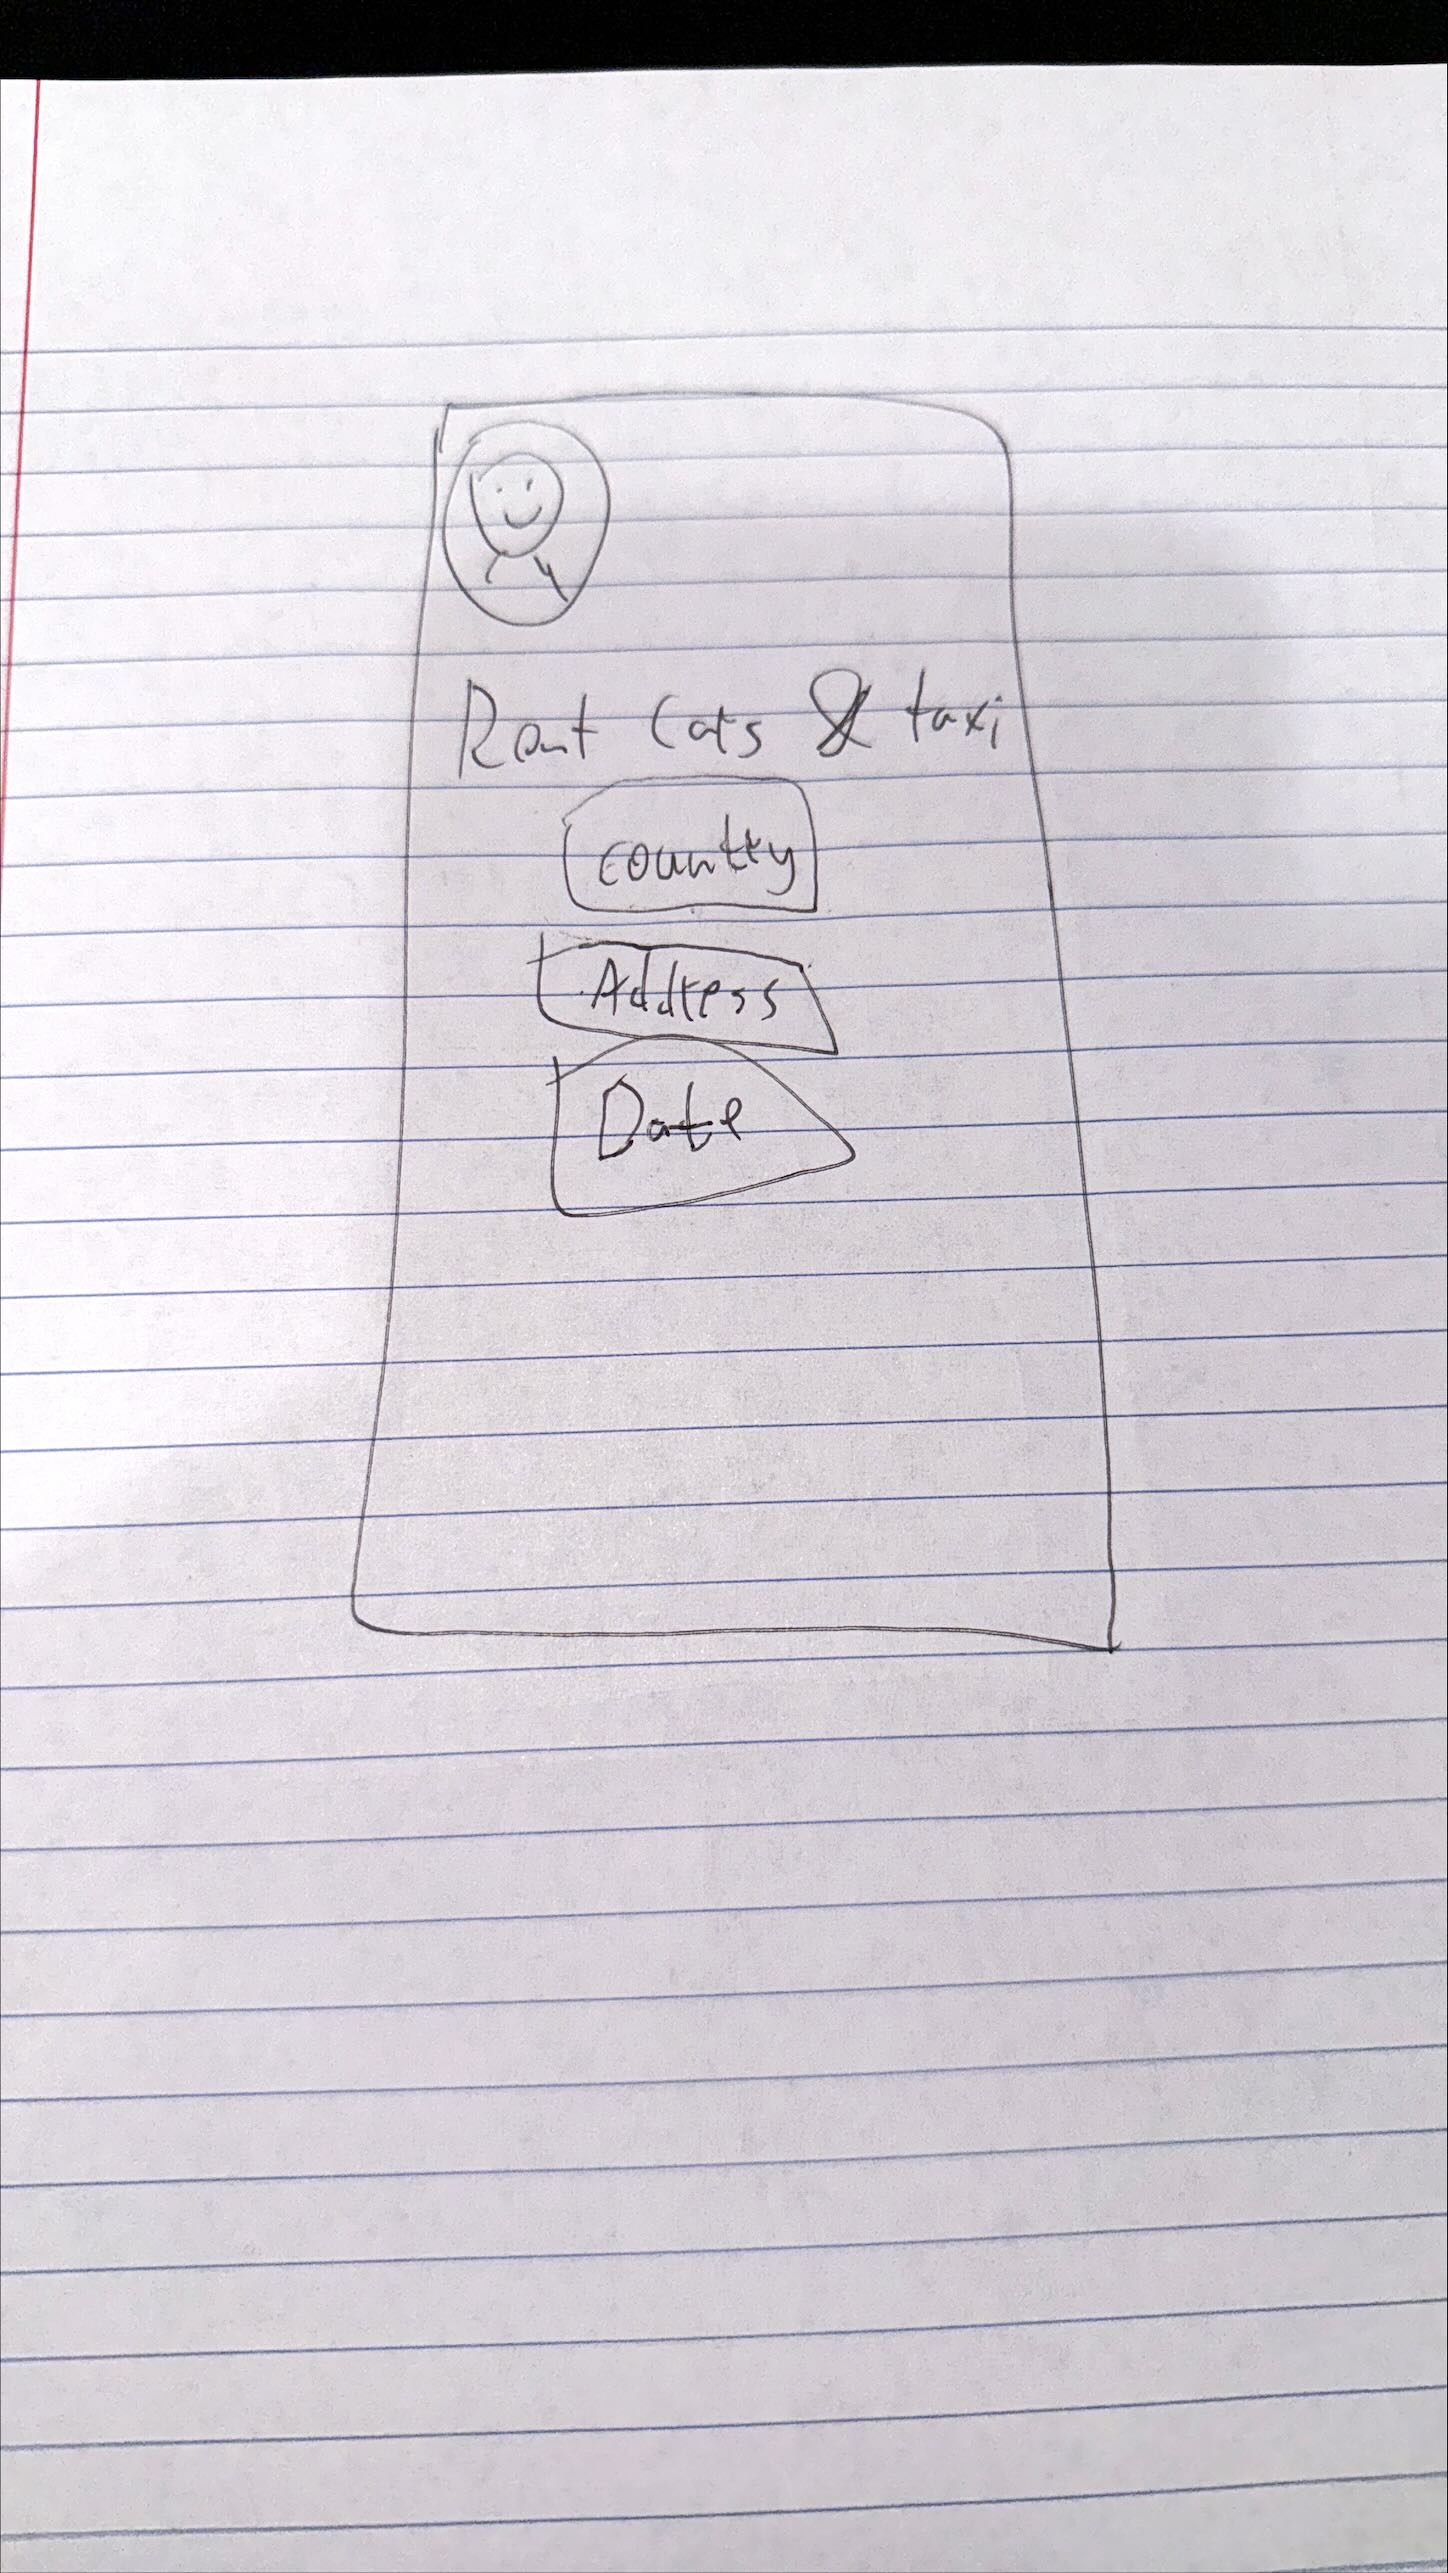 Rent Cars & taxi
country
Address
Date